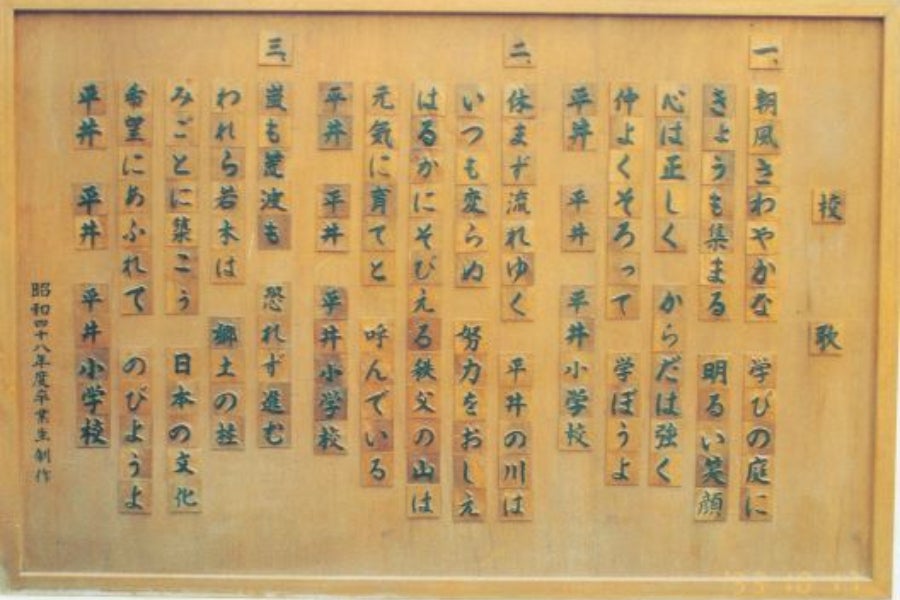 校歌
一、朝風さわやかな　学びの庭に
きょうも集まる　明るい笑顔
心は正しく　からだは強く
仲よくそろって　学ぼうよ
平井　平井　平井小学校
二、休まず流れゆく　平井の川は
いつも変らぬ　努力をおしえ
はるかにそびえる秩父の山は
元気に育てと　呼んでいる
平井　平井　平井小学校
三、嵐も荒波も　恐れず進む
われら若木は　郷土の柱
みごとに築こう　日本の文化
希望にあふれて　のびようよ
平井　平井　平井小学校
昭和四十八年度卒業生制作